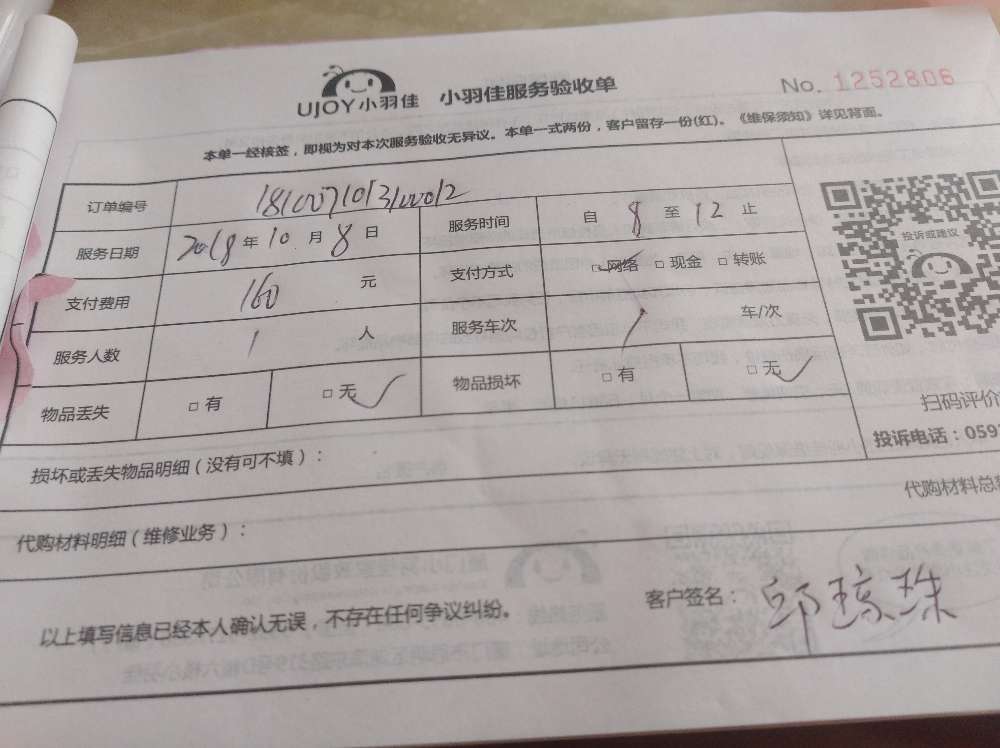 UJOY小羽佳 小羽佳服务验收单 No. 1252806
本单一经核签，即视为对本次服务验收无异议。本单一式两份，客户留存一份(红)。《维保须知》详见背面。
订单编号
服务日期 2018年10月8日 服务时间 自 8 至 12 止
支付费用 160 元 支付方式 □网络 □现金 □转账
服务人数 1 人 服务车次 1 车/次
物品丢失 □有 □无 ✓ 物品损坏 □有 □无 ✓
投诉或建议
扫码评价
投诉电话：059
损坏或丢失物品明细（没有可不填）：
代购材料总
代购材料明细（维修业务）：
以上填写信息已经本人确认无误，不存在任何争议纠纷。 客户签名：邱琼珠